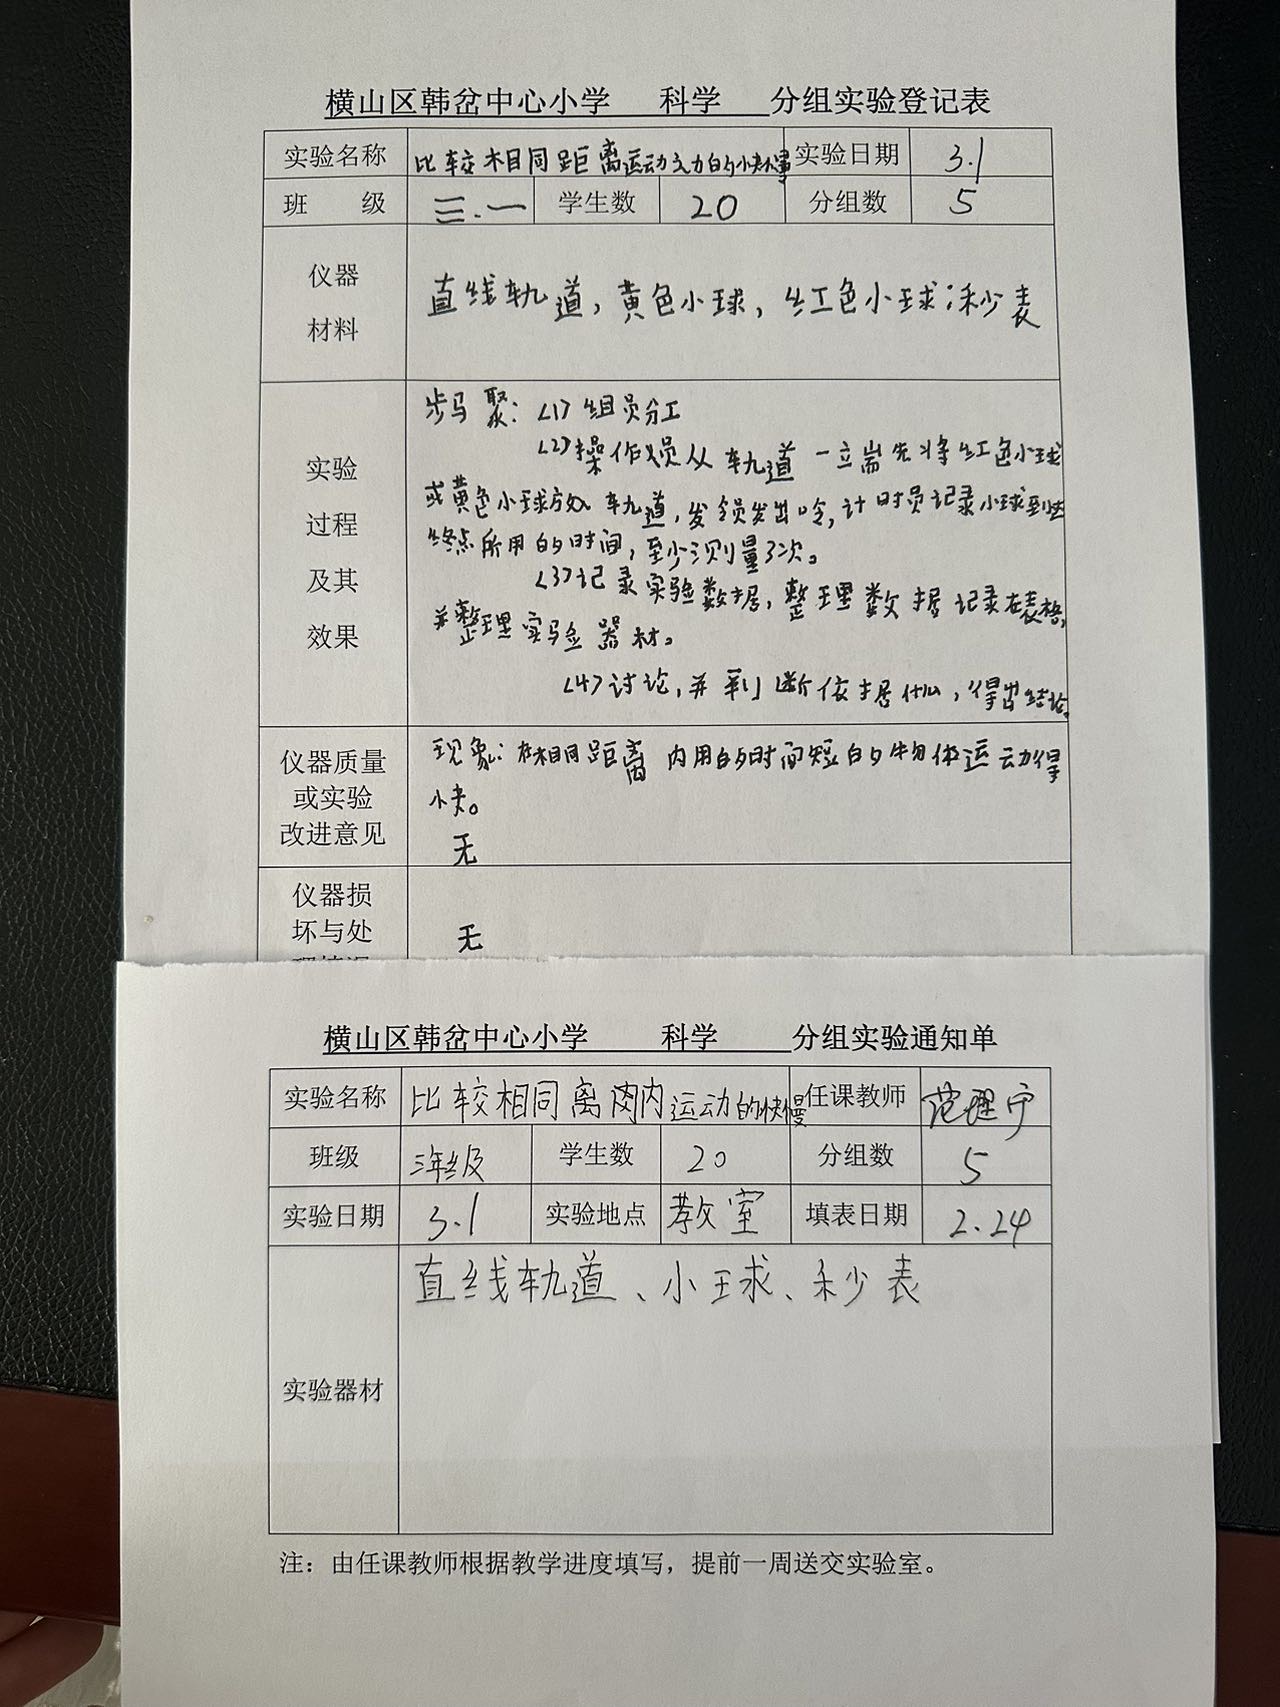 横山区韩岔中心小学 科学 分组实验登记表
实验名称 比较相同距离运动的快慢 实验日期 3.1
班 级 三.一 学生数 20 分组数 5
仪器
材料
直线轨道，黄色小球，红色小球；秒表
实验
过程
及其
效果
步骤：<1>组员分工
<2>操作员从轨道一端先将红色小球
或黄色小球放入轨道，发令员发出口令，计时员记录小球到达
终点所用的时间，至少测量3次。
<3>记录实验数据，整理数据记录在表格，
并整理实验器材。
<4>讨论，并判断依据什么，得出结论。
仪器质量
或实验
改进意见
现象：在相同距离内用的时间短的物体运动得
快。
无
仪器损
坏与处
无
横山区韩岔中心小学 科学 分组实验通知单
实验名称 比较相同离内运动的快慢 任课教师
班级 三年级 学生数 20 分组数 5
实验日期 3.1 实验地点 教室 填表日期 2.24
实验器材
直线轨道、小球、秒表
注：由任课教师根据教学进度填写，提前一周送交实验室。